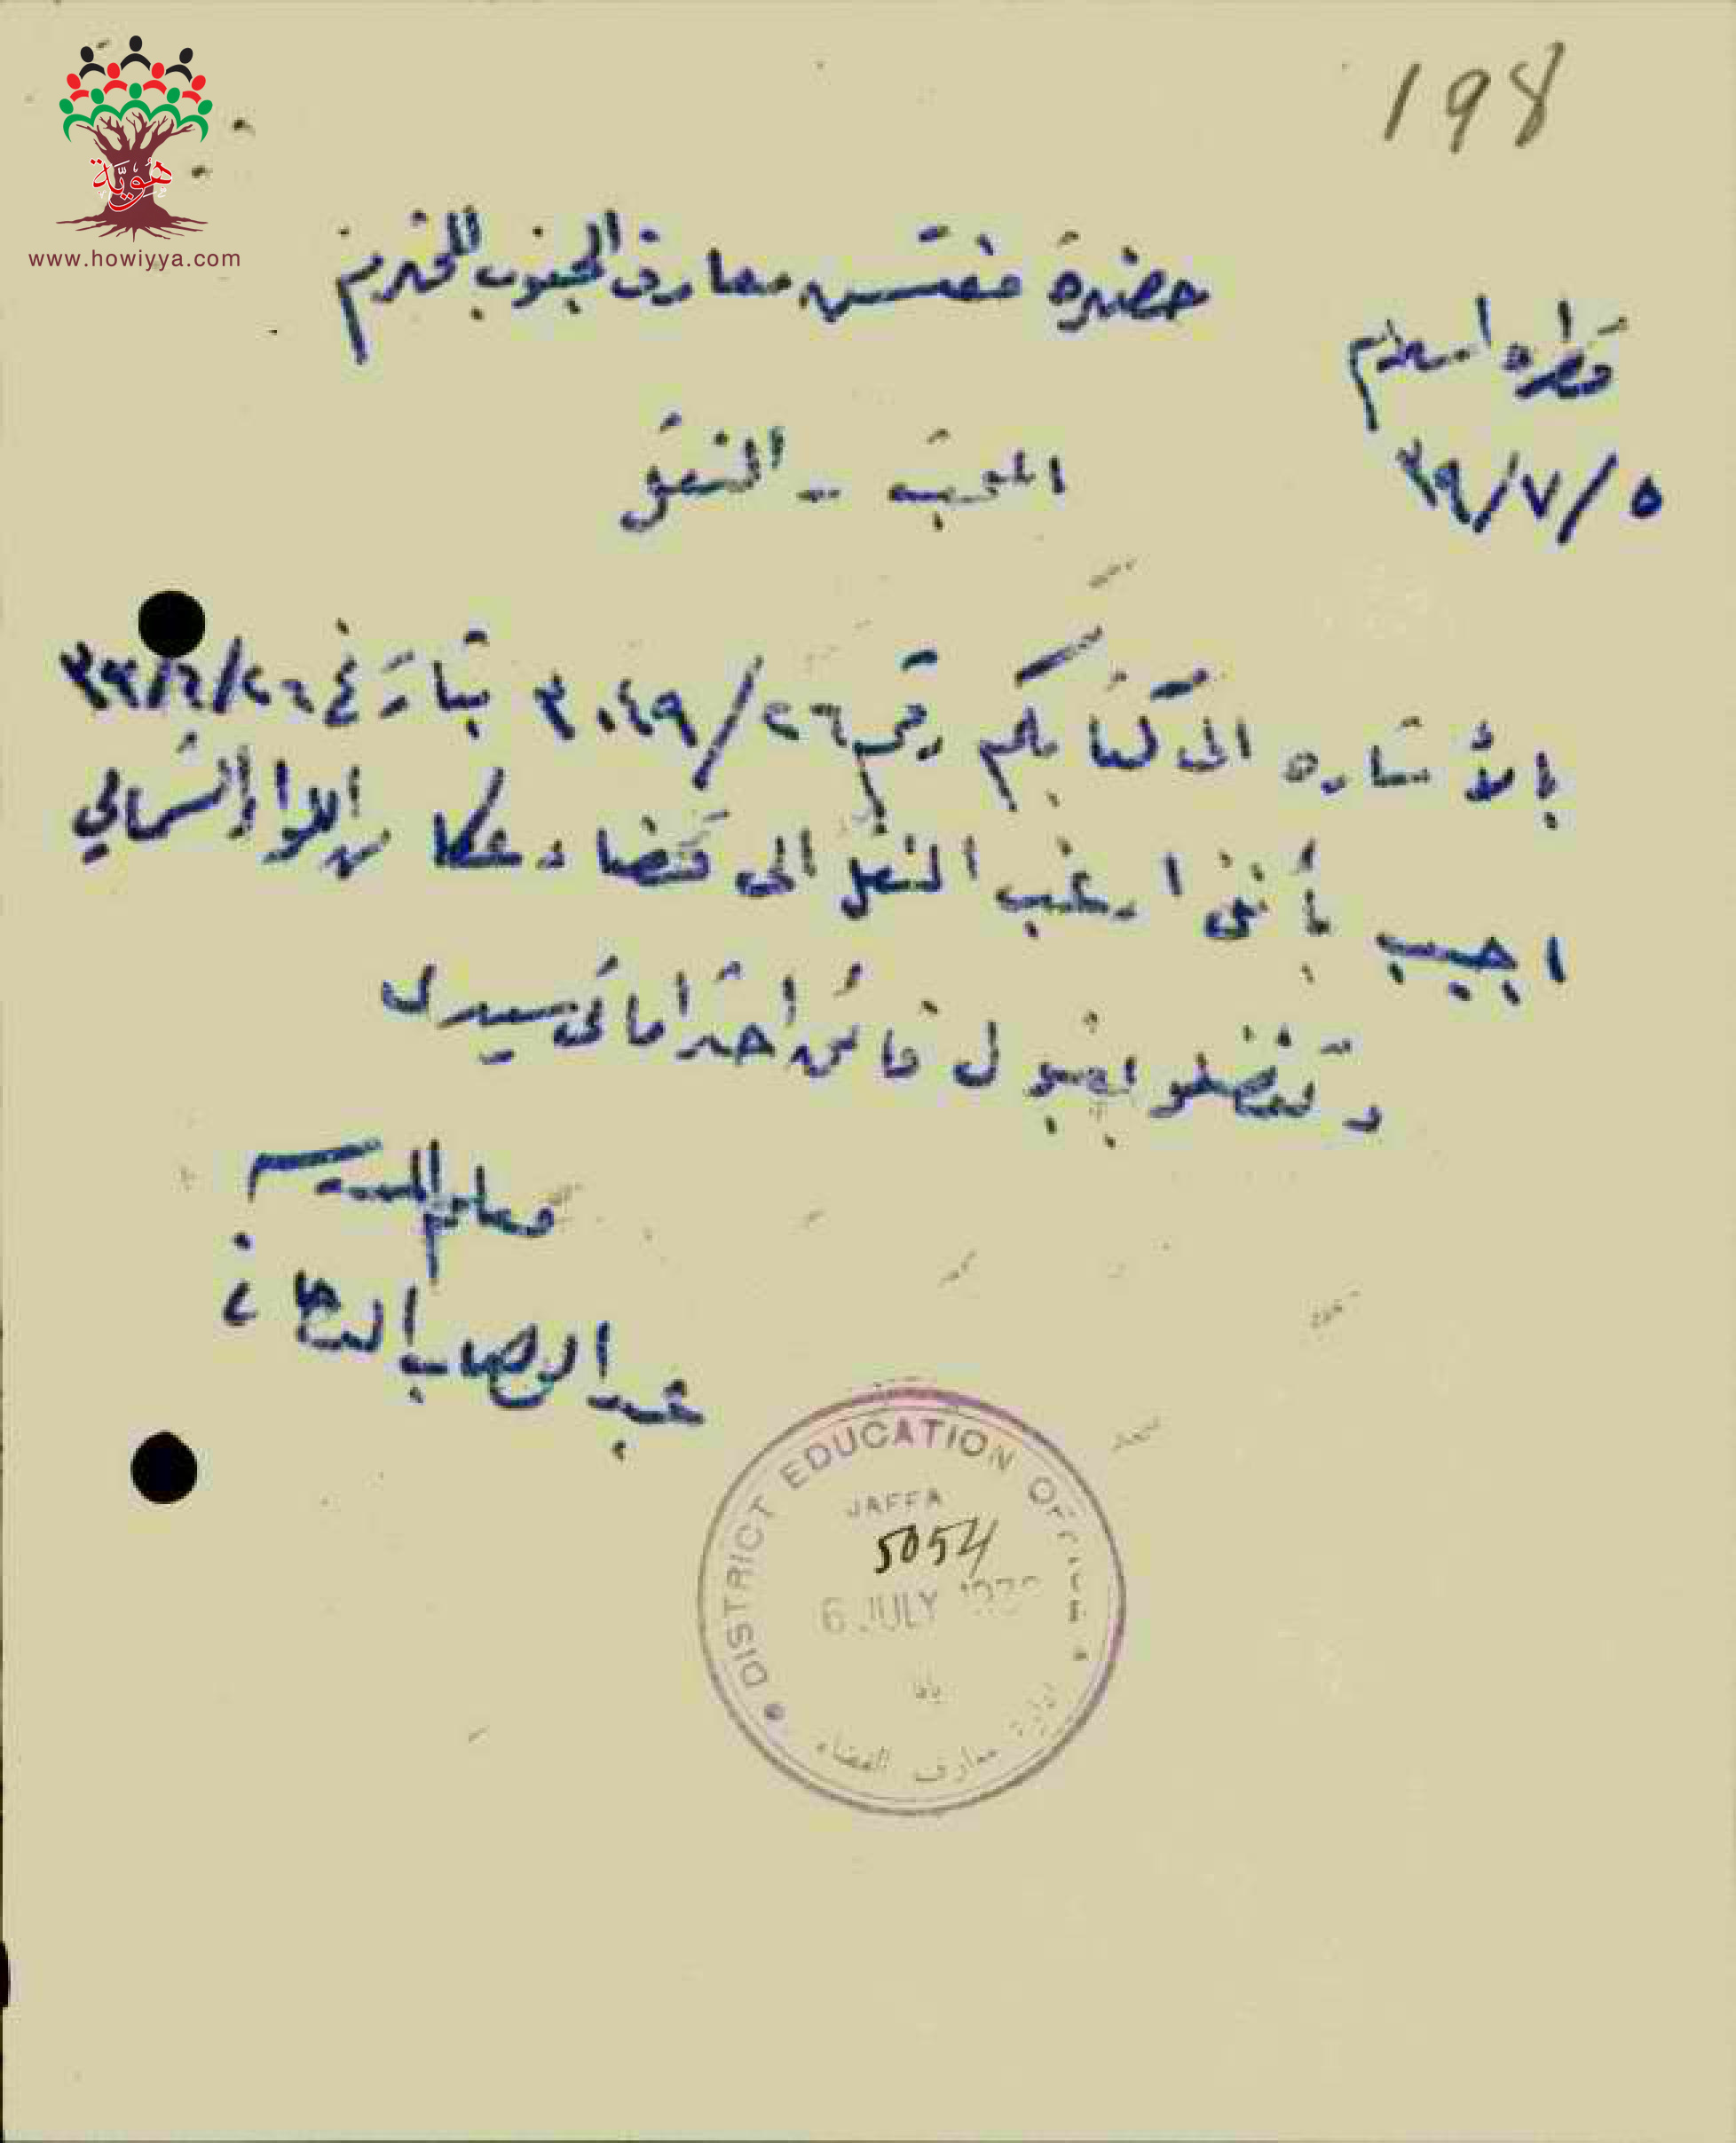 هوية
www.howiyya.com
198
حضرة مفتش معارف الجنوب المحترم
قطره اسلام
٥/٧/٣٩
المحب - النقل
بالأشاره الى كتابكم رقم ٢٦/٣٠٤٩ بتاريخ
اجيب بأنني ارغب النقل الى قضاء عكا اللواء الشمالي
وتفضلو بقبول فائق احتراماتي سيدي
معلم
عبد الوهاب
DISTRICT EDUCATION OFFICE
JAFFA
5054
6 JULY
يافا
ادارة معارف القضاء